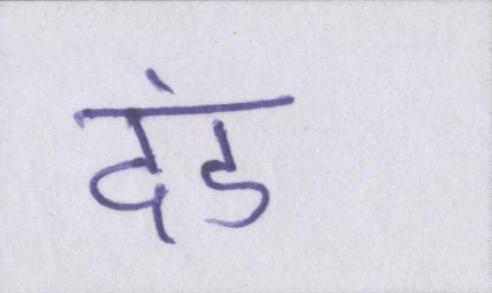 दंड